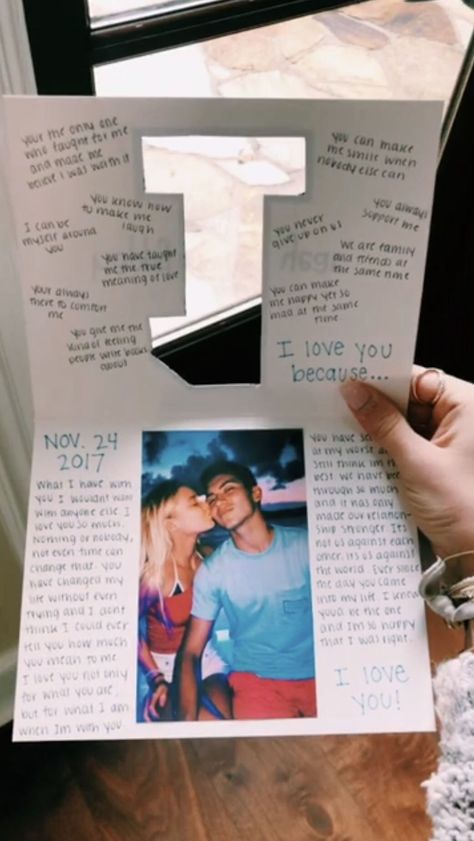 Your the only one
who taught me
and made me
believe I was worth it
You know how
to make me
laugh
I can be
myself around
you
You have taught
me the true
meaning of love
Your always
there to comfort
me
You give me the
kind of feeling
people write books
about
You can make
me smile when
nobody else can
You always
support me
You never
give up on us
We are family
and friends at
the same time
You can make
me happy yet so
mad at the same
time
I love you
because...
NOV. 24
2017
What I have with
you I wouldnt want
with anyone else. I
love you so much.
Nothing or nobody,
not even time can
change that. You
have changed my
life without even
trying and I dont
think I could ever
tell you how much
you mean to me
I love you not only
for what you are,
but for what I am
when Im with you
You have
at my worst
still think im
best. we have
through so much
and it has only
made our relation-
ship stronger. Its
not us against each
other. its us against
the world. Ever since
the day you came
into my life. I knew
the one
and Im so happy
that I was right.
I love
you!